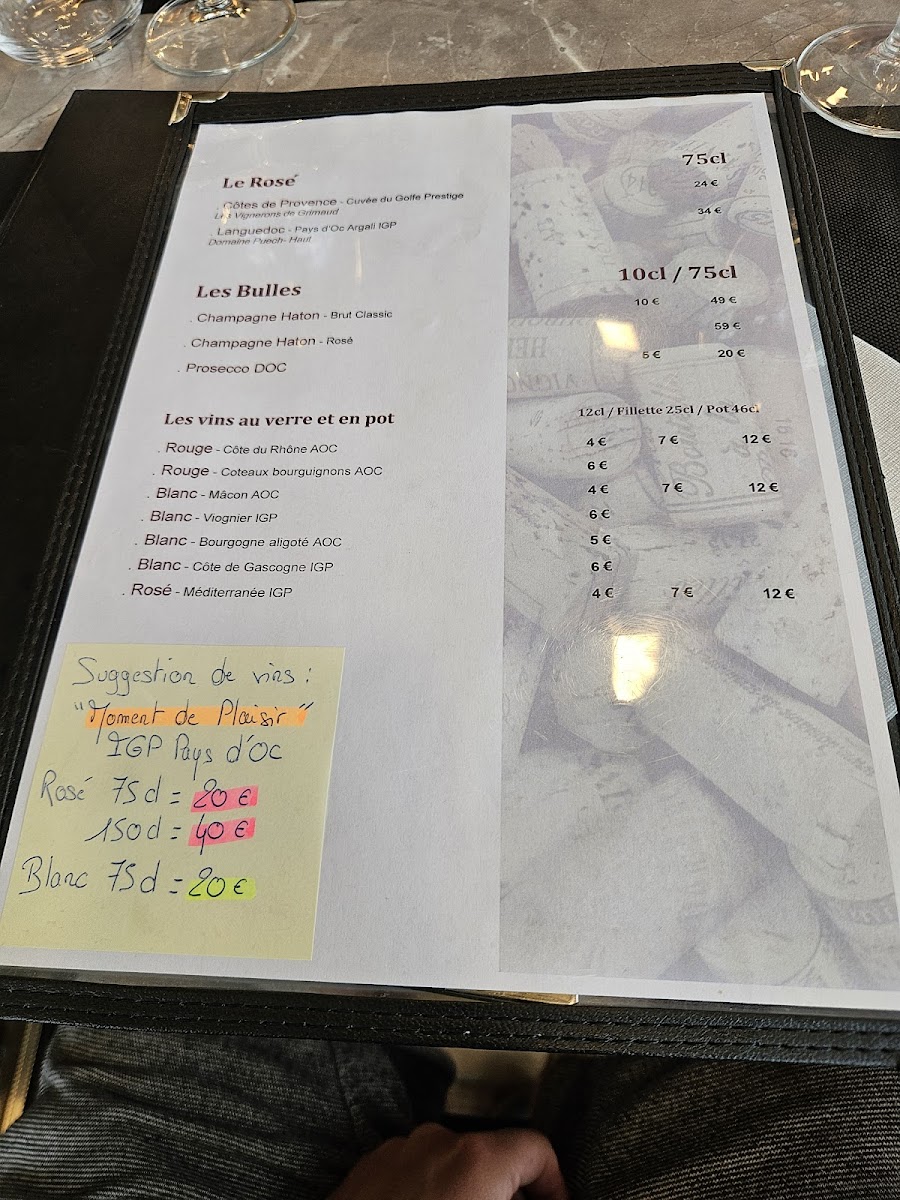 Le Rosé
75cl
. Côtes de Provence - Cuvée du Golfe Prestige
24 €
Les Vignerons de Grimaud
. Languedoc - Pays d'Oc Argali IGP
34 €
Domaine Puech- Haut
Les Bulles
10cl / 75cl
. Champagne Haton - Brut Classic
10 € 49 €
. Champagne Haton - Rosé
59 €
. Prosecco DOC
5 € 20 €
Les vins au verre et en pot
12cl / Fillette 25cl / Pot 46cl
. Rouge - Côte du Rhône AOC
4 € 7 € 12 €
. Rouge - Coteaux bourguignons AOC
6 €
. Blanc - Mâcon AOC
4 € 7 € 12 €
. Blanc - Viognier IGP
6 €
. Blanc - Bourgogne aligoté AOC
5 €
. Blanc - Côte de Gascogne IGP
6 €
. Rosé - Méditerranée IGP
4 € 7 € 12 €
Suggestion de vins :
"Moment de Plaisir"
IGP Pays d'Oc
Rosé 75cl = 20 €
150cl = 40 €
Blanc 75cl = 20 €